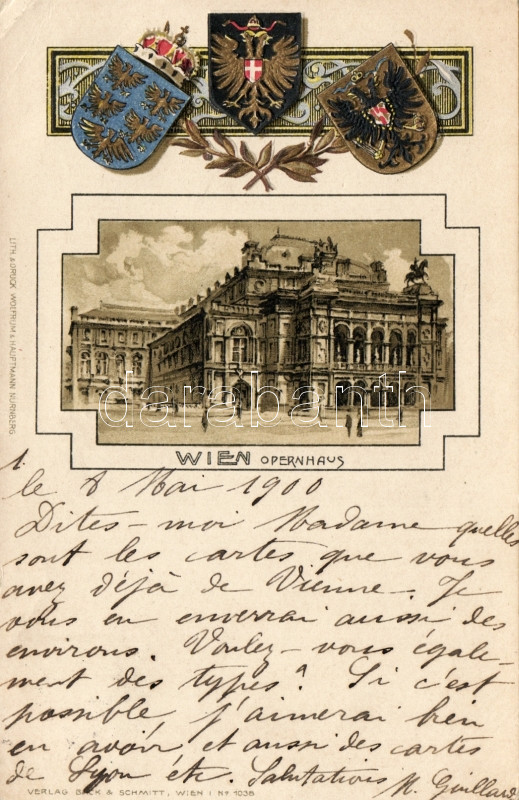 LITH. & DRUCK WOLFRUM & HAUPTMANN NÜRNBERG.
darabanth
WIEN OPERNHAUS
1.
le 8 Mai 1900
Dites-moi Madame quelles
sont les cartes que vous
avez déjà de Vienne. Je
vous en enverrai aussi des
environs. Voulez-vous égale-
ment des types? Si c'est
possible, j'aimerai bien
en avoir et aussi des cartes
de Lyon étc. Salutations M. Guillard
VERLAG BACK & SCHMITT, WIEN I Nº 1038